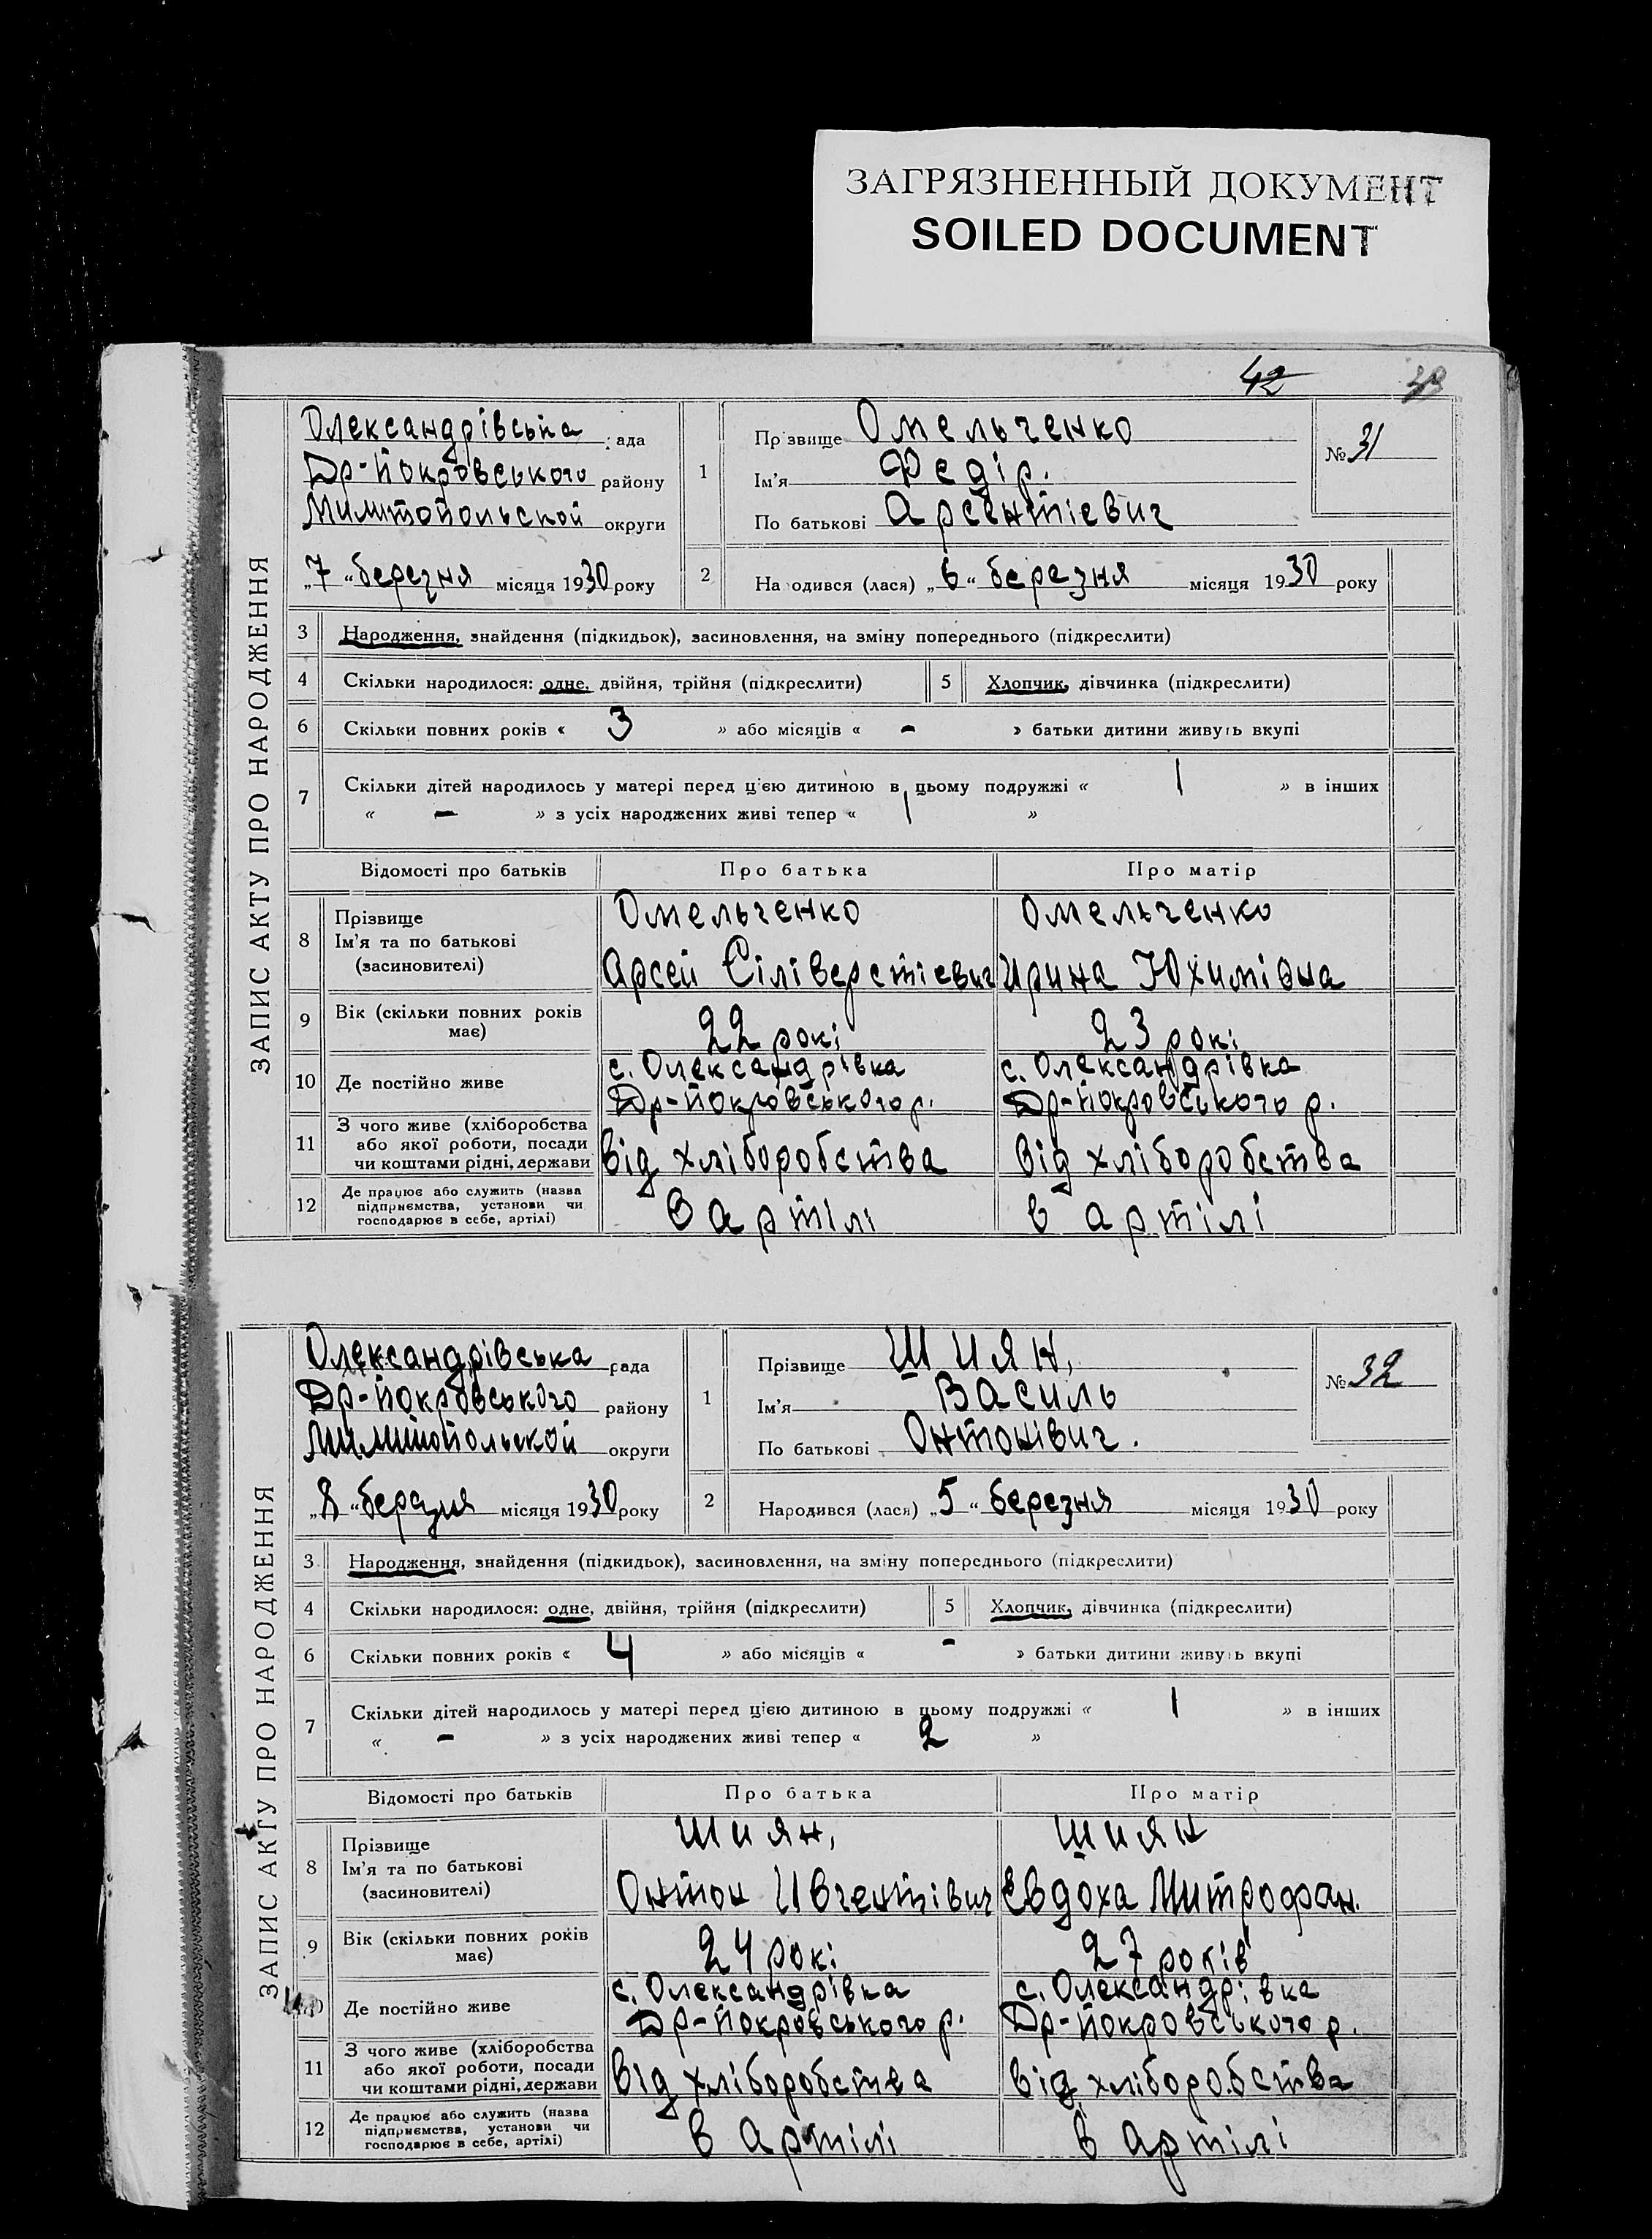 ЗАГРЯЗНЕННЫЙ ДОКУМЕНТ
SOILED DOCUMENT
42
ЗАПИС АКТУ ПРО НАРОДЖЕННЯ
Олександрівська рада
Др-Покровського району
Милитопольской округи
„7“ березня місяця 1930 року
1 Прізвище Омельченко
Ім'я Федір.
По батькові Арсентіевич
№ 31
2 Народився (лася) „6“ березня місяця 1930 року
3 Народження, знайдення (підкидьок), засиновлення, на зміну попереднього (підкреслити)
4 Скільки народилося: одне, двійня, трійня (підкреслити) 5 Хлопчик, дівчинка (підкреслити)
6 Скільки повних років « 3 » або місяців « - » батьки дитини живуть вкупі
7 Скільки дітей народилось у матері перед цією дитиною в цьому подружжі « 1 » в інших
« - » з усіх народжених живі тепер « 1 »
Відомості про батьків Про батька Про матір
8 Прізвище Омельченко Омельченко
Ім'я та по батькові
(засиновителі) Арсей Сіліверстіевич Ирина Юхимівна
9 Вік (скільки повних років має) 22 рокі 23 рокі
10 Де постійно живе с. Олександрівка с. Олександрівка
Др-Покровського р. Др-Покровського р.
11 З чого живе (хліборобства
або якої роботи, посади
чи коштами рідні, держави від хліборобства від хліборобства
12 Де працює або служить (назва
підприємства, установи чи
господарює в себе, артілі) в артілі в артілі
ЗАПИС АКТУ ПРО НАРОДЖЕННЯ
Олександрівська рада
Др-Покровського району
Милитопольской округи
„8“ березня місяця 1930 року
1 Прізвище Шиян,
Ім'я Василь
По батькові Онтонівич.
№ 32
2 Народився (лася) „5“ березня місяця 1930 року
3 Народження, знайдення (підкидьок), засиновлення, на зміну попереднього (підкреслити)
4 Скільки народилося: одне, двійня, трійня (підкреслити) 5 Хлопчик, дівчинка (підкреслити)
6 Скільки повних років « 4 » або місяців « - » батьки дитини живуть вкупі
7 Скільки дітей народилось у матері перед цією дитиною в цьому подружжі « 1 » в інших
« - » з усіх народжених живі тепер « 2 »
Відомості про батьків Про батька Про матір
8 Прізвище Шиян, Шиян
Ім'я та по батькові
(засиновителі) Онтон Ивгентівич Евдоха Митрофан.
9 Вік (скільки повних років має) 24 рокі 27 років
Де постійно живе с. Олександрівка с. Олександрівка
Др-Покровського р. Др-Покровського р.
11 З чого живе (хліборобства
або якої роботи, посади
чи коштами рідні, держави від хліборобства від хліборобства
12 Де працює або служить (назва
підприємства, установи чи
господарює в себе, артілі) в артілі в артілі